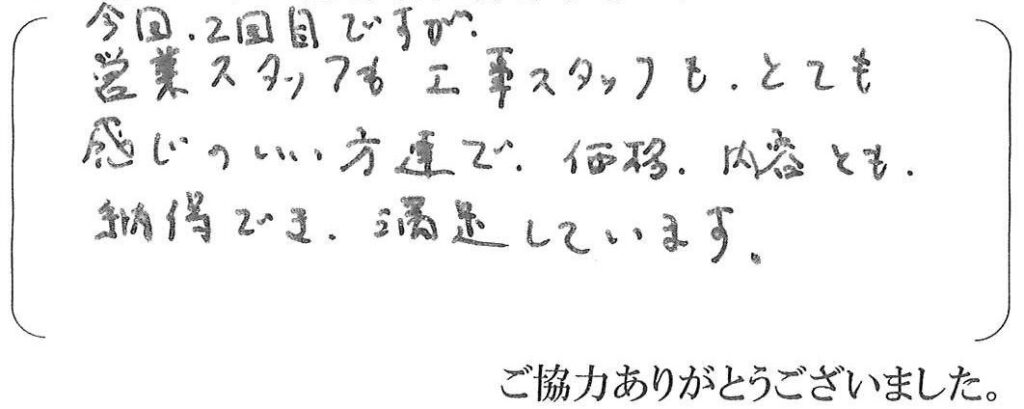 今回、2回目ですが、
営業スタッフも工事スタッフも、とても
感じのいい方達で、価格、内容とも、
納得でき、満足しています。
ご協力ありがとうございました。